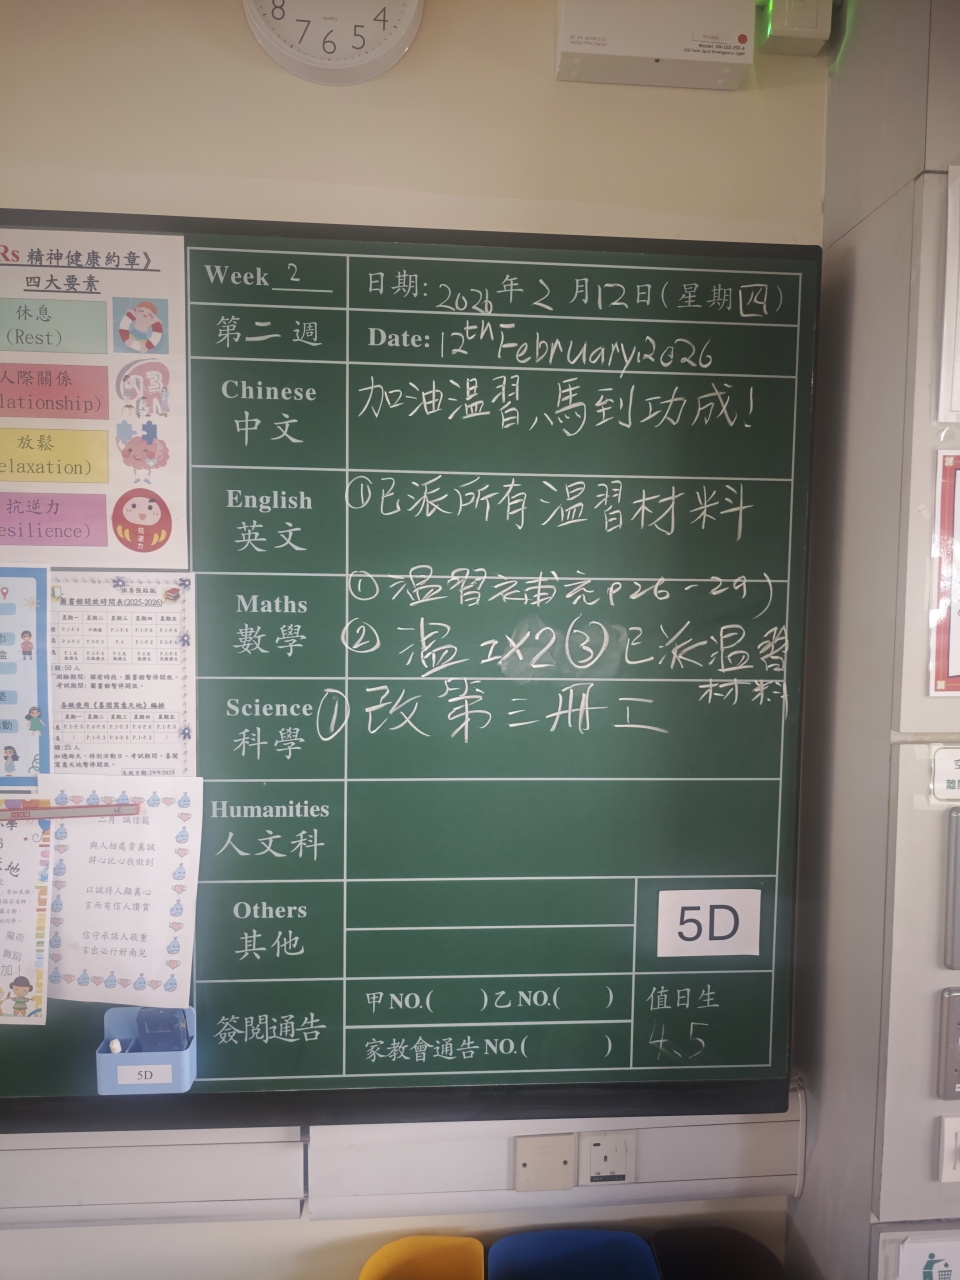 8 7 6 5 4
Rs 精神健康約章》
四大要素
休息
(Rest)
人際關係
lationship)
放鬆
elaxation)
抗逆力
esilience)
抗逆力
Week 2
日期: 2026年2月12日(星期四)
第二週
Date: 12th February, 2026
Chinese
中文
加油溫習、馬到功成!
English
英文
①已派所有溫習材料
Maths
數學
① 溫習衣補充p26-29)
② 溫 IX2 ③ 已派溫習
材料
Science
科學
① 改第三冊工
Humanities
人文科
Others
其他
5D
簽閱通告
甲NO.( )乙NO.( )
家教會通告NO.( )
值日生
4、5
圖書館開放時間表(2025-2026)
三月 誠信報
與人相處貴真誠
將心比心我做到
以誠待人顯真心
言而有信人讚賞
信守承諾人敬重
言出必行好南兒
魔術
舞蹈
加!
5D